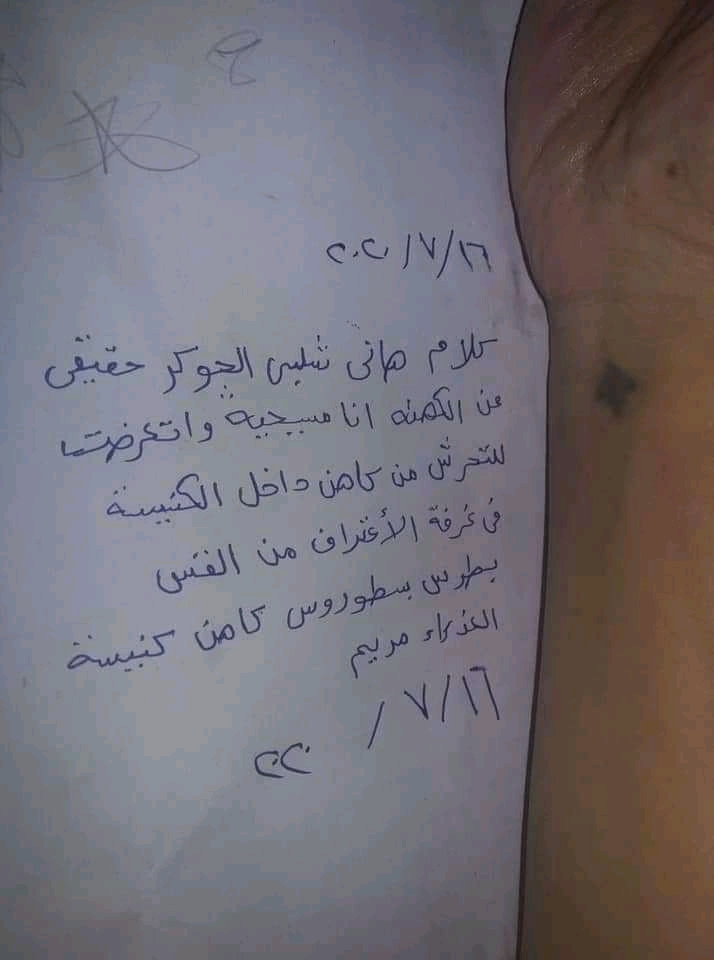 ٢٠٢٠/٧/١٦
كلام هانى شلبى الجوكر حقيقى
عن الكهنه انا مسيحية واتعرضت
للتحرش من كاهن داخل الكنيسة
فى غرفة الأعتراف من القس
بطرس بسطوروس كاهن كنيسة
العذراء مريم
٢٠٢٠ / ٧/١٦